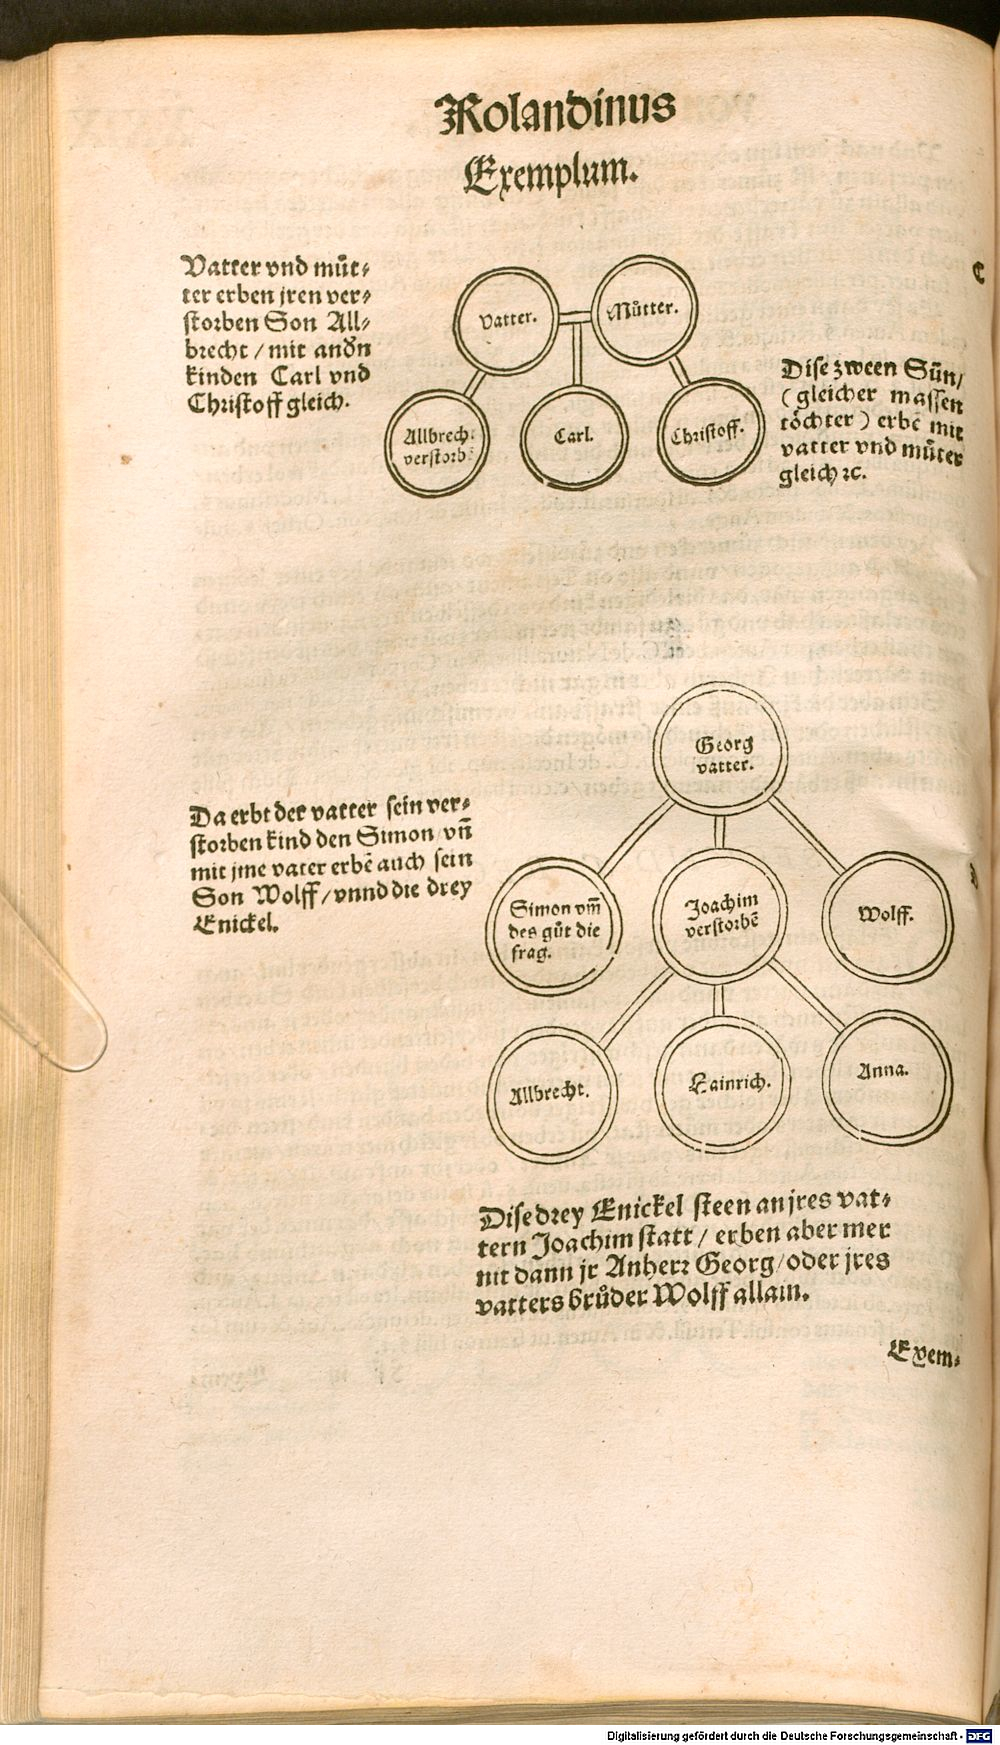 Rolandinus
Exemplum.
Vatter vnd můt⸗
ter erben jren ver⸗
storben Son All⸗
brecht / mit andn̄
kinden Carl vnd
Christoff gleich.
Vatter.
Můtter.
Allbrech.
verstorb.
Carl.
Christoff.
Dise zween Sün /
( gleicher massen
töchter ) erbē mit
vatter vnd můter
gleich ꝛc.
Georg
vatter.
Da erbt der vatter sein ver⸗
storben kind den Simon / vn̄
mit jme vater erbē auch sein
Son Wolff / vnnd die drey
Enickel.
Simon vm̄
des gůt die
frag.
Joachim
verstorbē
Wolff.
Allbrecht.
Hainrich.
Anna.
Dise drey Enickel steen an jres vat⸗
tern Joachim statt / erben aber mer
nit dann jr Anherr Georg / oder jres
vatters brůder Wolff allain.
Exem⸗
C
Digitalisierung gefördert durch die Deutsche Forschungsgemeinschaft - DFG